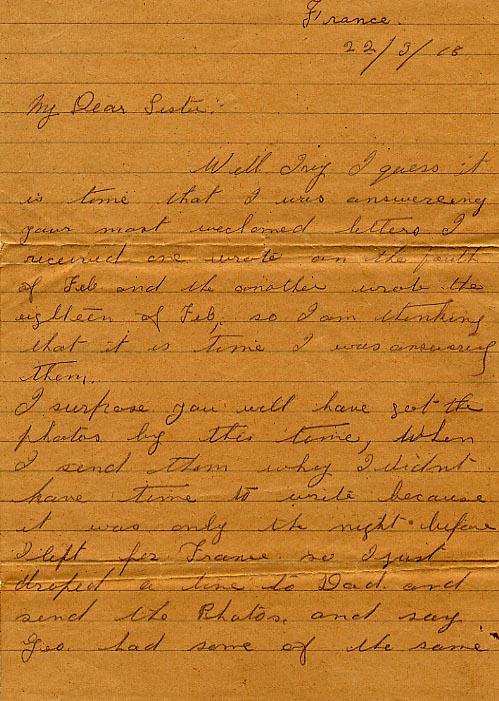 France.
22/3/18
My Dear Sister:
Well Ivy I guess it
is time that I was answereing
your most welcomed letters I
received one wrote on the fouth
of Feb and the another wrote the
eighteen of Feb, so I am thinking
that it is time I was answering
them.
I surpose you will have got the
photos by this time, When
I send them why I didnt
have time to write because
it was only the night before
I left for France so I just
droped a line to Dad and
send the Photos. and say
Geo. had some of the same